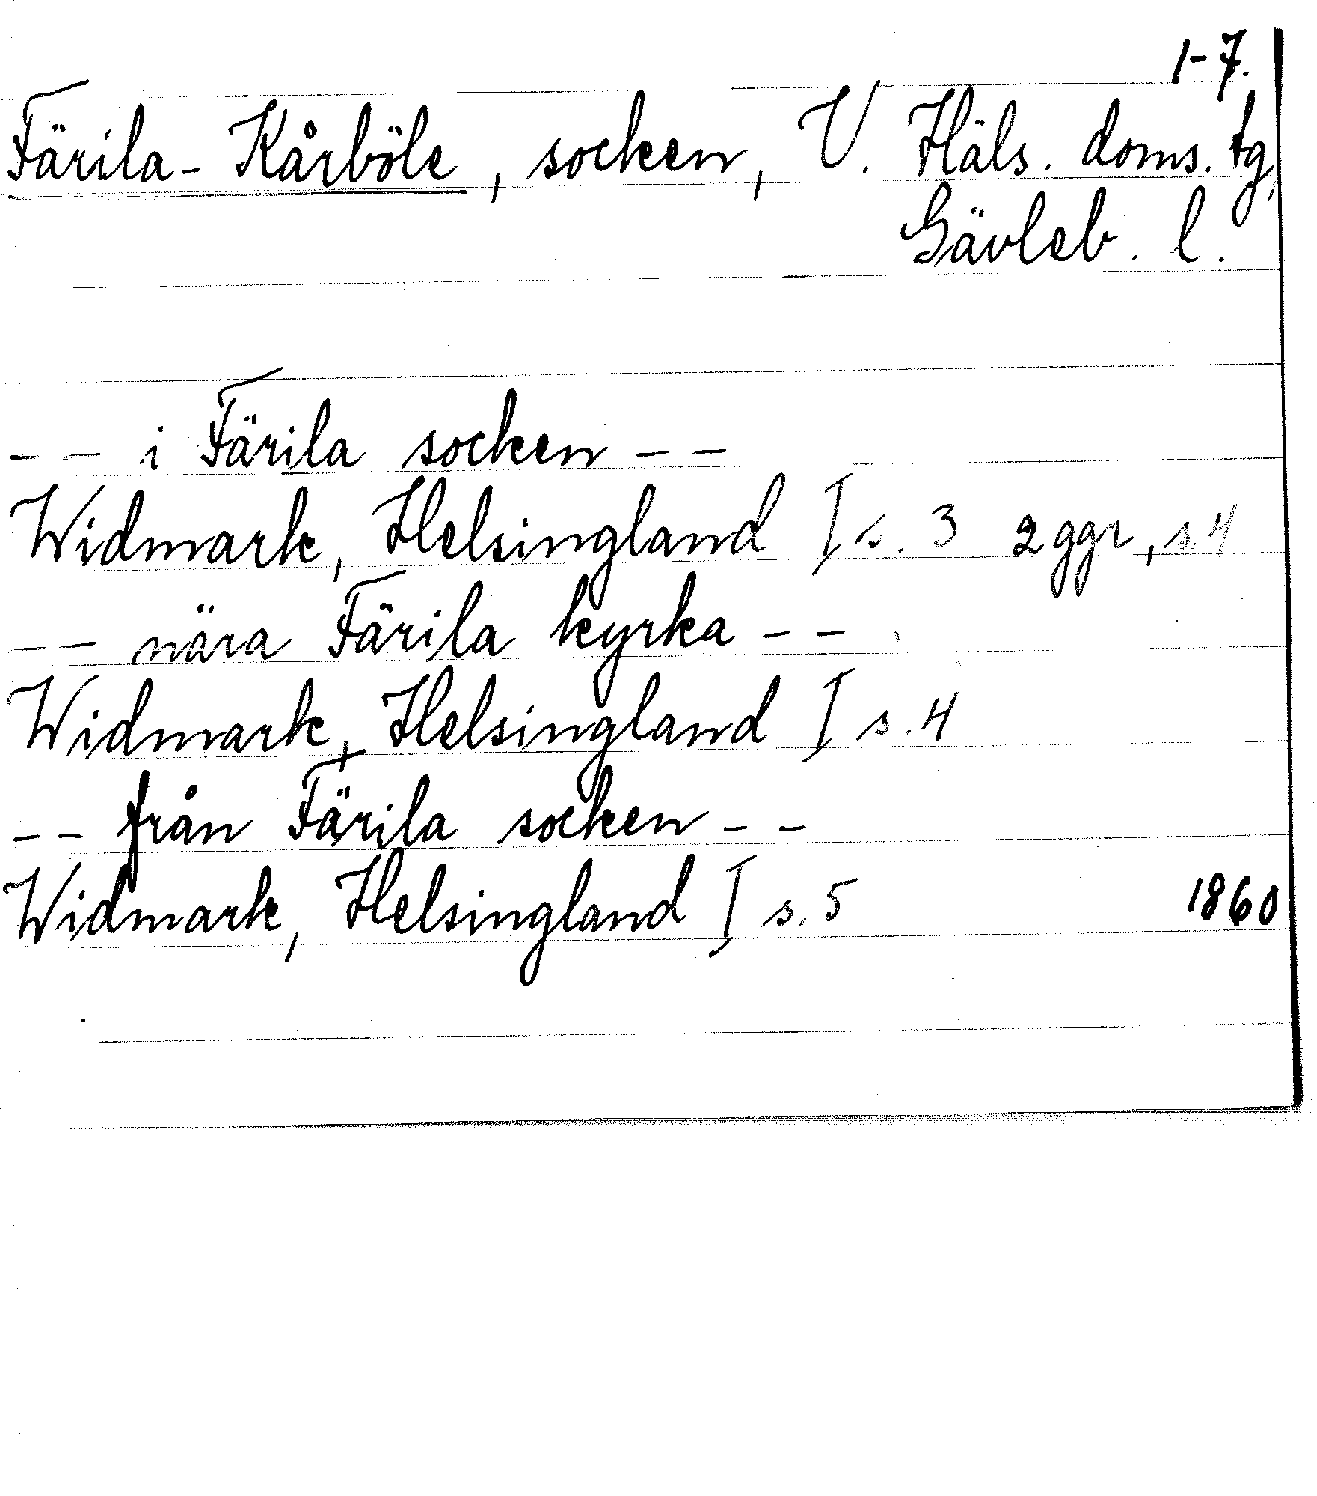 1-7.
Färila-Kårböle, socken, V. Häls. doms. tg,
Gävleb. l.
-- i Färila socken --
Widmark, Helsingland I s. 3 2 ggr, s. 4
-- nära Färila kyrka --
Widmark, Helsingland I s. 4
-- från Färila socken --
Widmark, Helsingland I s. 5 1860